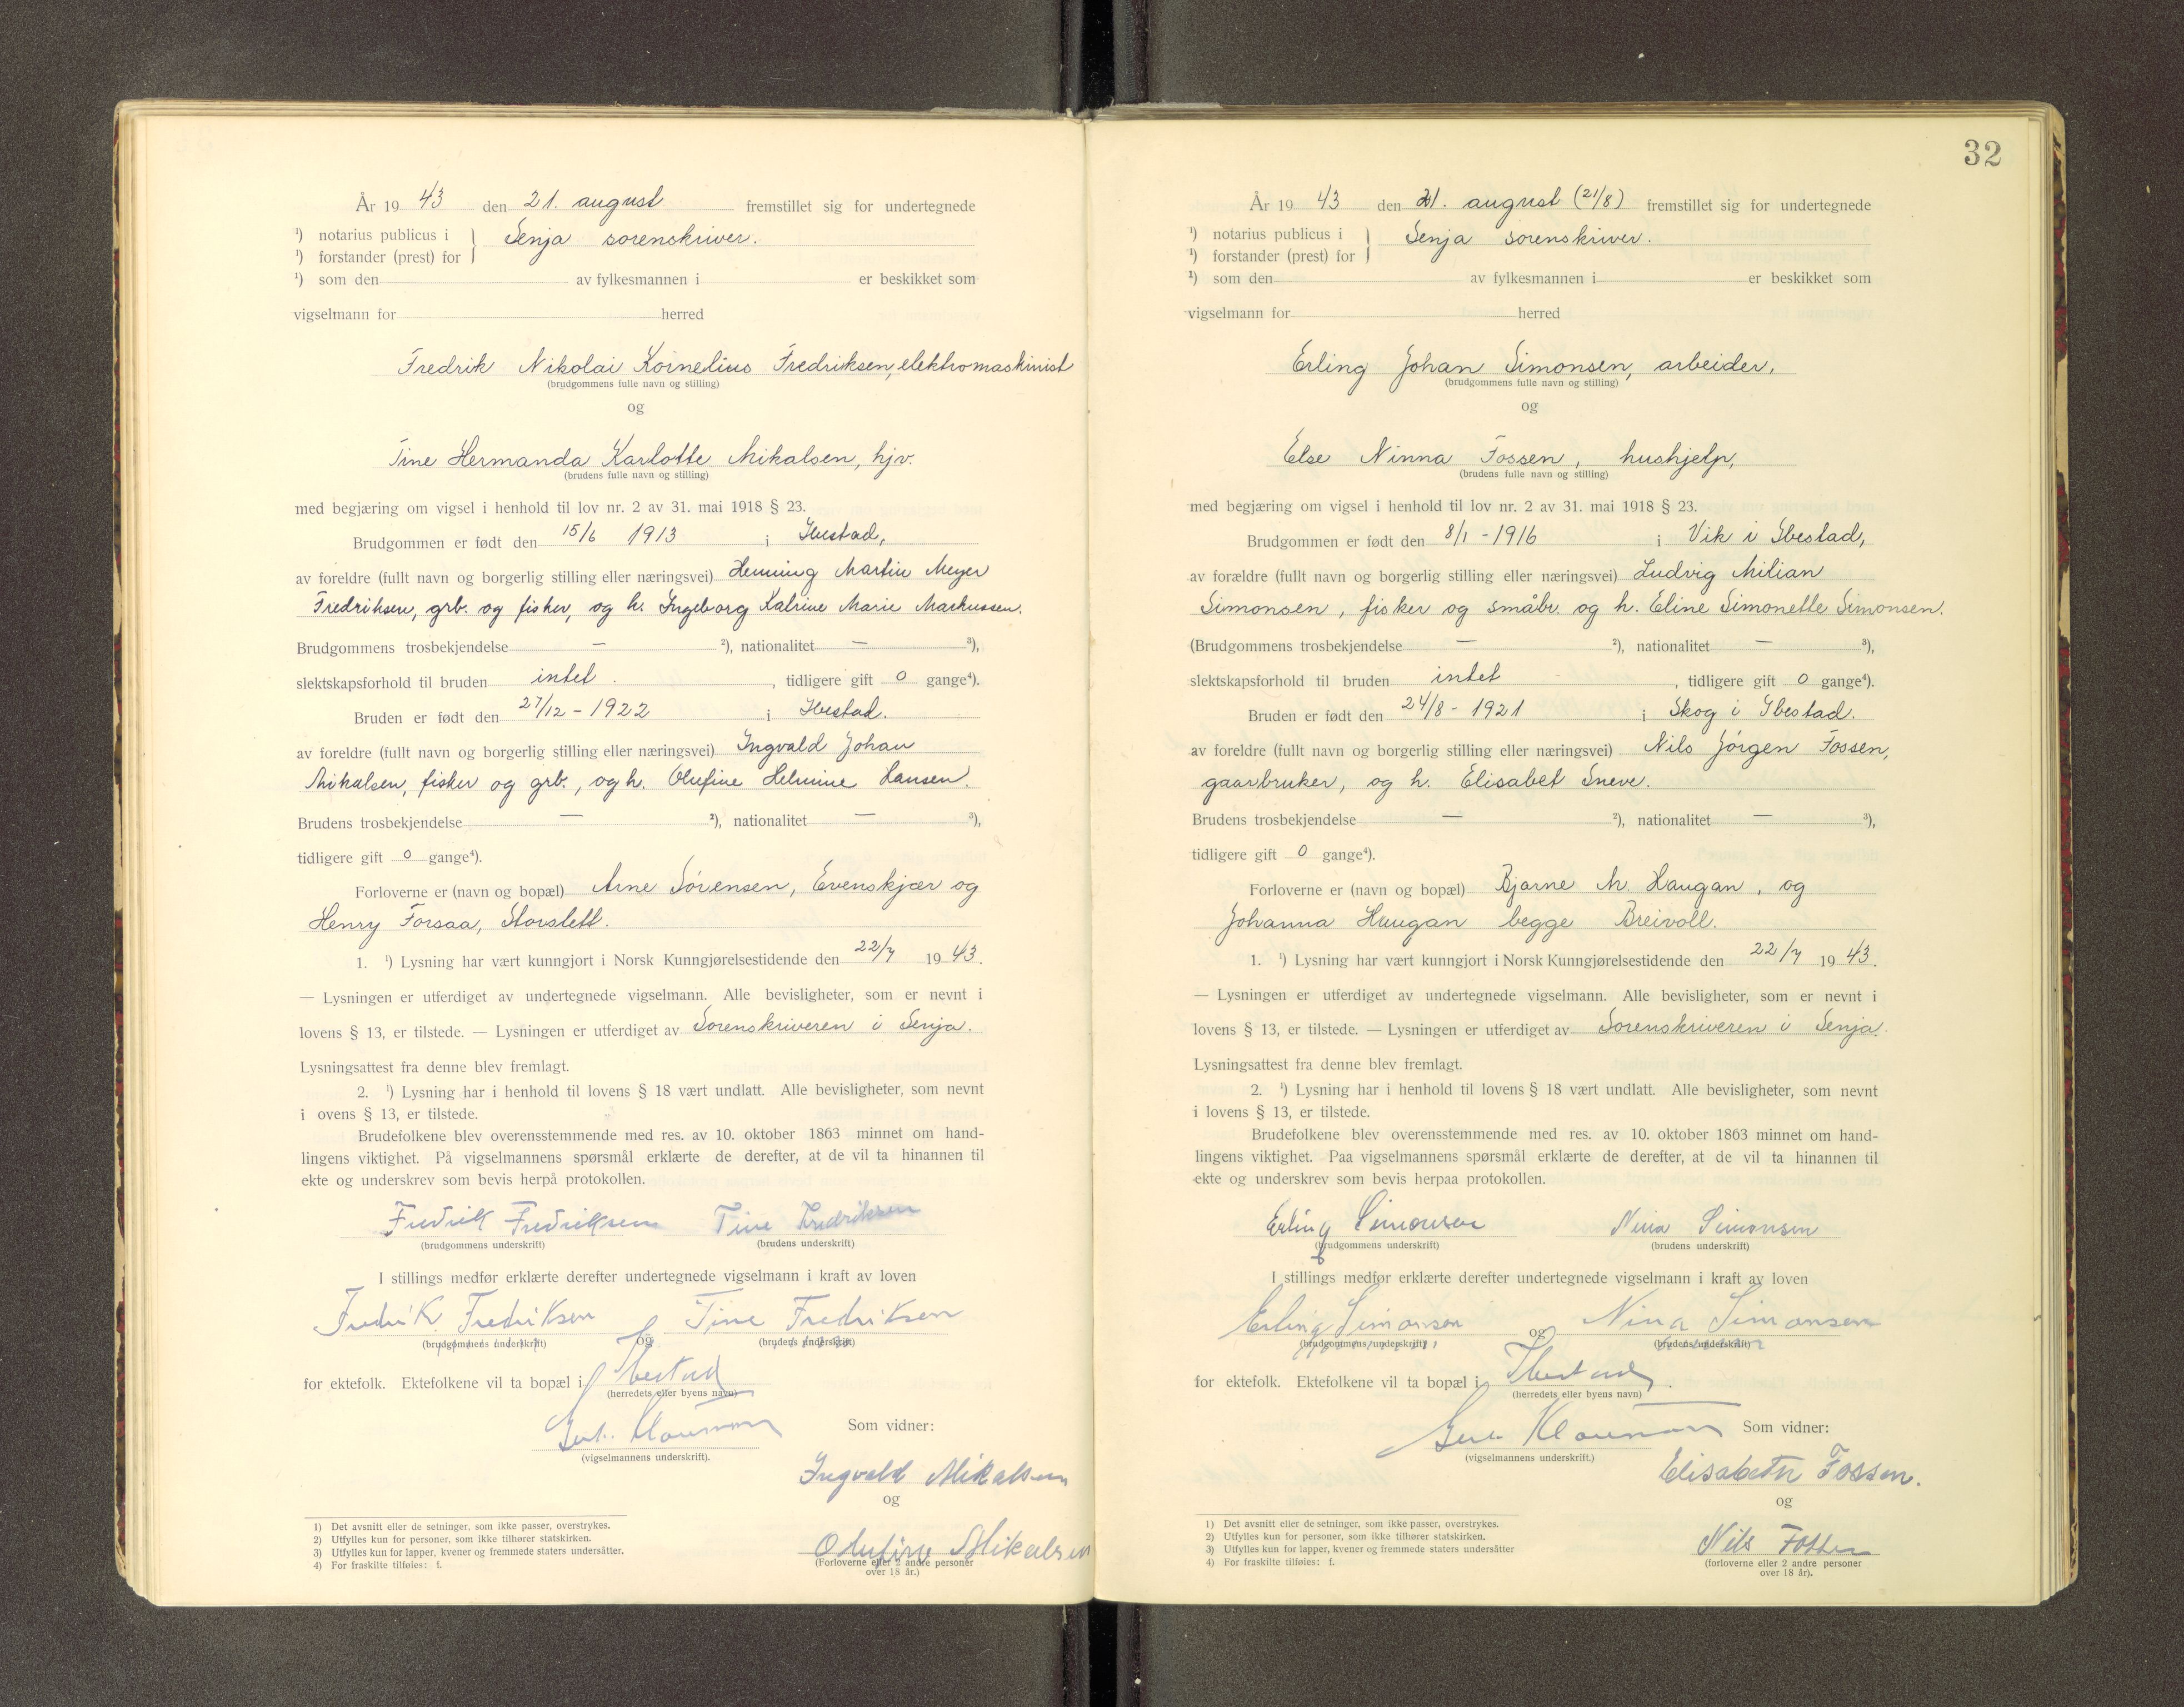 År 19 43 den 21. august fremstillet sig for undertegnede
¹) notarius publicus i } Senja sorenskriver.
¹) forstander (prest) for
¹) som den av fylkesmannen i er beskikket som
vigselmann for herred
Fredrik Nikolai Kornelius Fredriksen, elektromaskinist
(brudgommens fulle navn og stilling)
og
Tine Hermanda Karlotte Mikalsen, hjv.
(brudens fulle navn og stilling)
med begjæring om vigsel i henhold til lov nr. 2 av 31. mai 1918 § 23.
Brudgommen er født den 15/6 1913 i Ibestad,
av foreldre (fullt navn og borgerlig stilling eller næringsvei) Henning Martin Meyer
Fredriksen, grb. og fisker, og h. Ingeborg Katrine Marie Markussen.
Brudgommens trosbekjendelse — ²), nationalitet — ³),
slektskapsforhold til bruden intet. , tidligere gift 0 gange⁴).
Bruden er født den 27/12 - 1922 i Ibestad.
av foreldre (fullt navn og borgerlig stilling eller næringsvei) Ingvald Johan
Mikalsen, fisker og grb., og h. Olufine Helmine Hansen.
Brudens trosbekjendelse — ²), nationalitet — ³),
tidligere gift 0 gange⁴).
Forloverne er (navn og bopæl) Arne Sörensen, Evenskjær og
Henry Forsaa, Storslett.
1. ¹) Lysning har vært kunngjort i Norsk Kunngjørelsestidende den 22/7 19 43.
— Lysningen er utferdiget av undertegnede vigselmann. Alle bevisligheter, som er nevnt i
lovens § 13, er tilstede. — Lysningen er utferdiget av Sorenskriveren i Senja.
Lysningsattest fra denne blev fremlagt.
2. ¹) Lysning har i henhold til lovens § 18 vært undlatt. Alle bevisligheter, som nevnt
i ovens § 13, er tilstede.
Brudefolkene blev overensstemmende med res. av 10. oktober 1863 minnet om hand-
lingens viktighet. På vigselmannens spørsmål erklærte de derefter, at de vil ta hinannen til
ekte og underskrev som bevis herpå protokollen.
Fredrik Fredriksen Tine Fredriksen
(brudgommens underskrift) (brudens underskrift)
I stillings medfør erklærte derefter undertegnede vigselmann i kraft av loven
Fredrik Fredriksen og Tine Fredriksen
(brudgommens underskrift) (brudens underskrift)
for ektefolk. Ektefolkene vil ta bopæl i Ibestad
(herredets eller byens navn)
Som vidner:
(vigselmannens underskrift).
Ingvald Mikalsen
og
Olufine Mikalsen
(Forloverne eller 2 andre personer
over 18 år.)
1) Det avsnitt eller de setninger, som ikke passer, overstrykes.
2) Utfylles kun for personer, som ikke tilhører statskirken.
3) Utfylles kun for lapper, kvener og fremmede staters undersåtter.
4) For fraskilte tilføies: f.
32
År 19 43 den 21. august (21/8) fremstillet sig for undertegnede
¹) notarius publicus i } Senja sorenskriver.
¹) forstander (prest) for
¹) som den av fylkesmannen i er beskikket som
vigselmann for herred
Erling Johan Simonsen, arbeider,
(brudgommens fulle navn og stilling)
og
Else Ninna Fossen, hushjelp,
(brudens fulle navn og stilling)
med begjæring om vigsel i henhold til lov nr. 2 av 31. mai 1918 § 23.
Brudgommen er født den 8/1 - 1916 i Vik i Ibestad,
av forældre (fullt navn og borgerlig stilling eller næringsvei) Ludvig Milian
Simonsen, fisker og småbr. og h. Eline Simonette Simonsen.
(Brudgommens trosbekjendelse — ²), nationalitet — ³),
slektskapsforhold til bruden intet , tidligere gift 0 gange⁴).
Bruden er født den 24/8 - 1921 i Skog i Ibestad.
av foreldre (fullt navn og borgerlig stilling eller næringsvei) Nils Jörgen Fossen,
gaarbruker, og h. Elisabet Sneve.
Brudens trosbekjendelse — ²), nationalitet — ³),
tidligere gift 0 gange⁴).
Forloverne er (navn og bopæl) Bjarne M. Haugan, og
Johanna Haugan begge Breivoll.
1. ¹) Lysning har vært kunngjort i Norsk Kunngjørelsestidende den 22/7 19 43.
— Lysningen er utferdiget av undertegnede vigselmann. Alle bevisligheter, som er nevnt i
lovens § 13, er tilstede. — Lysningen er utferdiget av Sorenskriveren i Senja.
Lysningsattest fra denne blev fremlagt.
2. ¹) Lysning har i henhold til lovens § 18 vært undlatt. Alle bevisligheter, som nevnt
i lovens § 13, er tilstede.
Brudefolkene blev overensstemmende med res. av 10. oktober 1863 minnet om hand-
lingens viktighet. Paa vigselmannens spørsmål erklærte de derefter, at de vil ta hinannen til
ekte og underskrev som bevis herpaa protokollen.
Erling Simonsen Nina Simonsen
(brudgommens underskrift) (brudens underskrift)
I stillings medfør erklærte derefter undertegnede vigselmann i kraft av loven
Erling Simonsen og Nina Simonsen
(brudgommens underskrift) (brudens underskrift)
for ektefolk. Ektefolkene vil ta bopæl i Ibestad.
(herredets eller byens navn)
Som vidner:
(vigselmannens underskrift.)
Elisabeth Fossen.
og
Nils Fossen
(forloverne eller 2 andre personer
over 18 år).
1) Det avsnitt eller de setninger, som ikke passer, overstrykes.
2) Utfylles kun for personer, som ikke tilhører statskirken.
3) Utfylles kun for lapper, kvener og fremmede staters undersåtter
4) For fraskilte tilføies: f.